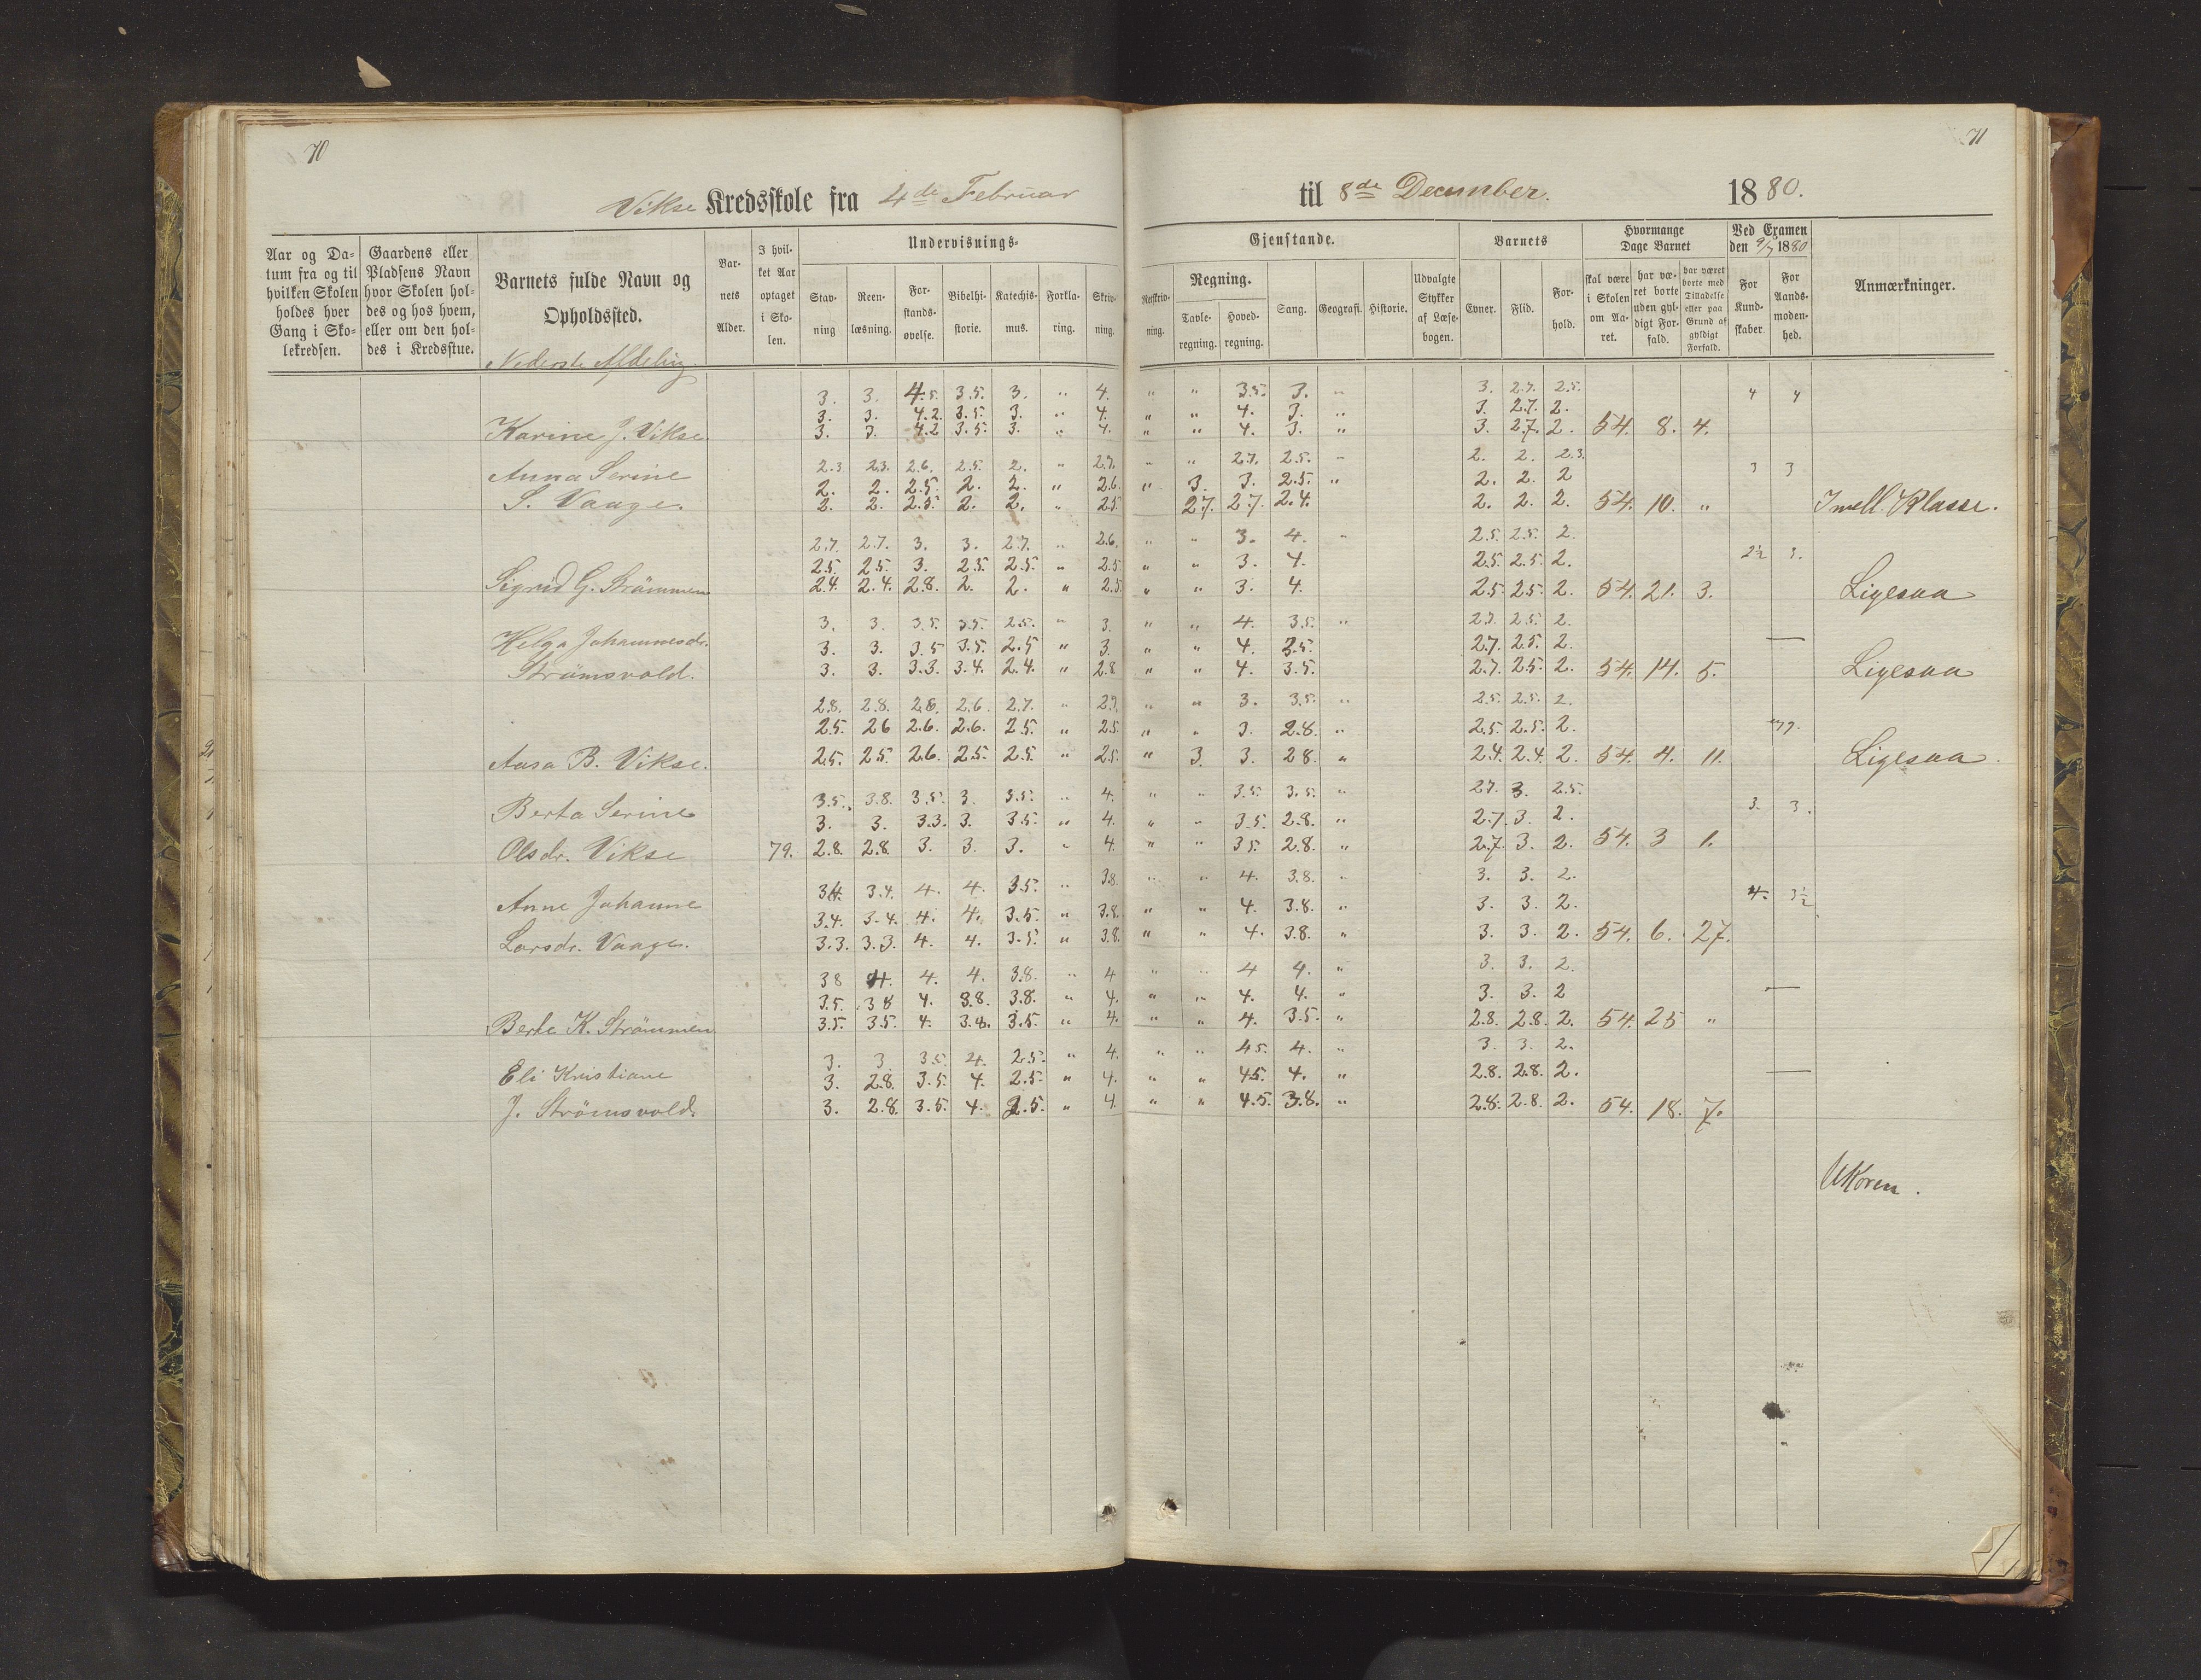 70
71
Vikse Kredsskole fra 4de Februar til 8de December. 1880.
Aar og Datum fra og til hvilken Skolen holdes hver Gang i Skolekredsen.
Gaardens eller Pladsens Navn hvor Skolen holdes og hos hvem, eller om den holdes i Kredsstue.
Barnets fulde Navn og Opholdssted.
Barnets Alder.
I hvilket Aar optaget i Skolen.
Undervisnings-
Stavning
Reenlæsning.
Forstandsøvelse.
Bibelhistorie.
Katechismus.
Forklaring.
Skrivning.
Gjenstande.
Retskrivning.
Regning.
Tavleregning.
Hovedregning.
Sang.
Geografi.
Historie.
Udvalgte Stykker af Læsebogen.
Barnets
Evner.
Flid.
Forhold.
Hvormange Dage Barnet
skal være i Skolen om Aaret.
har været borte uden gyldigt Forfald.
har været borte med Tilladelse eller paa Grund af gyldigt Forfald.
Ved Examen den 9/7 1880
For Kundskaber.
For Aandsmodenhed.
Anmærkninger.
Nederste Afdeling
3. 3. 4.5. 3.5. 3. " 4. " " 3.5. 3. " 3. 2.7. 2.5. 4 4
3. 3. 4.2. 3.5. 3. " 4. " " 4. 3. " 3. 2.7. 2.
Karine J. Vikse. 3. 3. 4.2 3.5. 3. " 4. " " 4. 3. " 3. 2.7. 2. 54. 8. 4.
2.3 2.3. 2.6. 2.5. 2. " 2.7. " " 2.7. 2.5. " 2. 2. 2.3.
Anna Serine 2. 2. 2.5. 2. 2. " 2.6. " 3. 3. 2.5. " 2. 2. 2 3 3
S. Vaage. 2. 2. 2.5. 2. 2. " 2.5. 2.7. 2.7. 2.4. 2. 2. 2. 54. 10. " I mell. Klasse.
2.7. 2.7. 3. 3. 2.7. " 2.6. " " 3. 4. " 2.5. 2.5. 2.
2.5. 2.5. 3. 2.5. 2.5. " 2.5 " " 3. 4. 2.5. 2.5. 2. 2½ 3.
Sigrid G. Strømmen 2.4. 2.4. 2.8. 2. 2. " 2.5. " " 3. 4. 2.5. 2.5. 2. 54. 21. 3. Ligesaa
3. 3. 3.5. 3.5. 2.5. " 3. " " 4. 3.5. " 2.7. 2.5. 2.
Helga Johannesdr. 3. 3. 3.5 3.5. 2.5 " 3. " " 4. 3.5. 2.7. 2.5. 2. —
Strømsvold. 3. 3. 3.3. 3.4. 2.4. " 2.8. " " 4. 3.5. 2.7. 2.5. 2. 54. 14. 5. Ligesaa
2.8. 2.8. 2.8. 2.6. 2.7. " 2.7. " " 3. 3.5. " 2.5. 2.5. 2.
2.5. 2.6 2.6. 2.6. 2.5. " 2.5. " " 3. 2.8. " 2.5. 2.5. 2.
Aasa B. Vikse. 2.5. 2.5. 2.6. 2.5. 2.5. " 2.5. " 3. 3. 2.8 " 2.4. 2.4. 2. 54. 4. 11. Ligesaa.
3.5. 3.8. 3.5. 3. 3.5. " 4. " " 3.5. 3.5. " 2.7. 3. 2.5.
Berta Serine 3. 3. 3.3. 3. 3.5. " 4. " " 3.5. 2.8. " 2.7. 3. 2. 3. 3.
Olsdr. Vikse 79. 2.8. 2.8. 3. 3. 3. " 4. " " 3.5. 2.8. " 2.7. 3. 2. 54. 3 1.
3.4. 3.4. 4. 4. 3.5. " 3.8. " " 4. 3.8. " 3. 3. 2.
Anne Johanne 3.4. 3.4. 4. 4. 3.5. " 3.8. " " 4. 3.8. " 3. 3. 2. 4. 3½
Larsdr. Vaage. 3.3. 3.3. 4. 4. 3.5. " 3.8. " " 4. 3.8. " 3. 3. 2. 54. 6. 27.
3.8 4. 4. 4. 3.8. " 4 " " 4 4. " 3. 3. 2.
3.5. 3.8 4. 3.8. 3.8. " 4. " " 4. 4. " 3. 3. 2 —
Berte K. Strømmen 3.5. 3.5. 4. 3.8. 3.5. " 4. " " 4. 3.5. " 2.8. 2.8. 2. 54. 25 "
3. 3. 3.5 4. 2.5. " 4. " " 4.5. 4. " 3. 3. 2.
Eli Kristiane 3. 2.8. 3.5. 4. 2.5. " 4. " " 4.5. 4. " 2.8. 2.8. 2. —
J. Strømsvold. 3. 2.8. 3.5. 4. 2.5. " 4. " " 4.5. 3.8. " 2.8. 2.8. 2. 54. 18. 7.
UKoren.